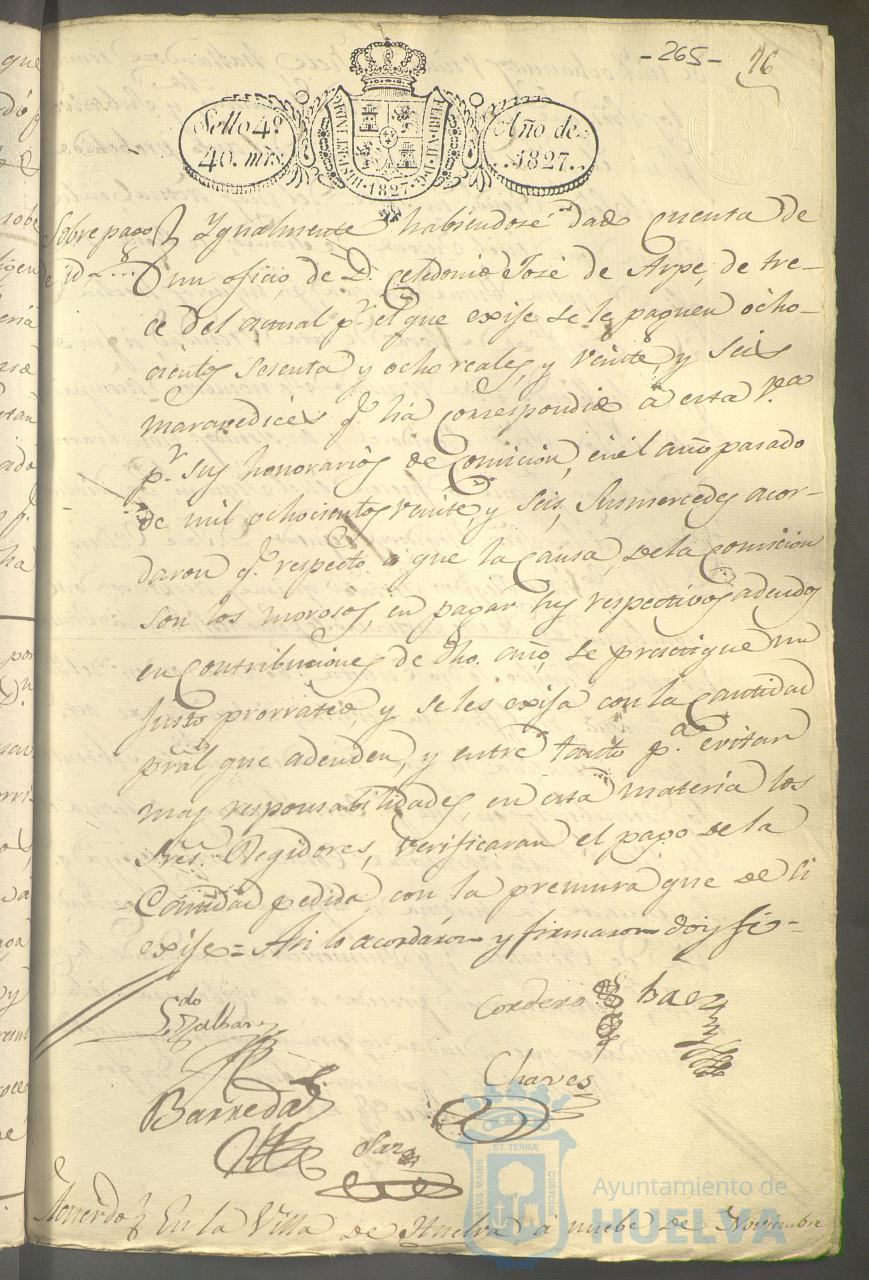 -265-
76
Sello 4º
40. mrs.
HISP. ET IND. R.
1827.
FERD. VII. D. G.
Año de
1827.
Sobre pago
de id
Ygualmente habiendose dado cuenta de
un oficio, de D. Celedonio José de Arpe, de tre-
ce del actual pr. el que exije se le paguen ocho-
cientos sesenta y ocho reales, y veinte y seis
maravedices q.e ha correspondido a esta va.
pr. sus honorarios de Comicion, en el año pasado
de mil ochocientos veinte, y seis, Susmercedes acor-
daron q.e respecto a que la Causa, de la Comicion
son los morosos, en pagar sus respectivos adeudos
en Contribuciones de dho. año, se practique un
justo prorrateo, y se les exija con la Cantidad
pral que adeuden, y entre tanto p.a evitar
mas responsabilidades, en esta materia los
Sres. Regidores, verificaran el pago de la
Cantidad pedida, con la premura que de si
exije = Asi lo acordaron y firmaron doy fe =
Cordero
Baez
Barreda
Chaves
Acuerdo En la Villa de Huelva a nuebe de Noviembre
ET TERRÆ
PORTUS MARIS
CUSTODIA
Ayuntamiento de
HUELVA